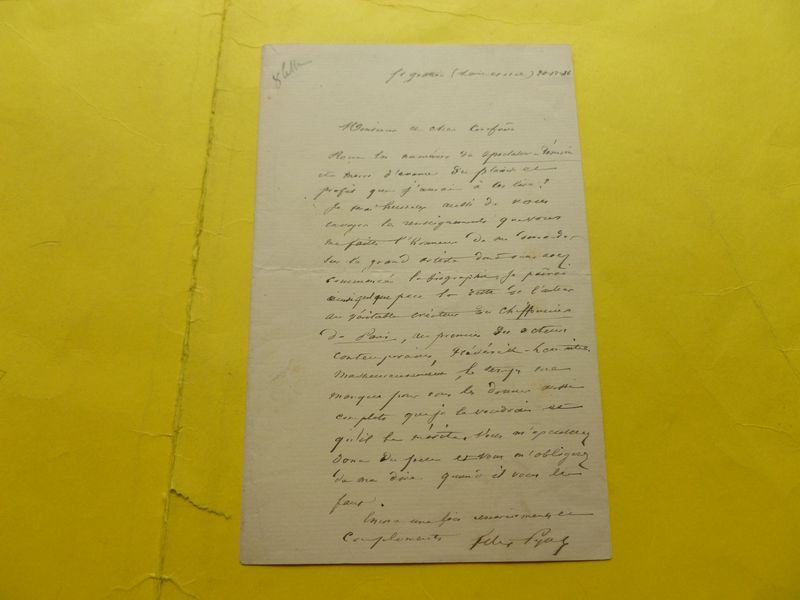 Monsieur et cher Confrère
Reçu les numéros du Spectateur
et merci d'avance du plaisir et
profit que j'aurai à les lire.
Je me aussi de vous
envoyer les renseignements que vous
me faites l'honneur de me demander
sur le grand artiste dont vous avez
commencé la biographie. Je
quelque peu la dette de l'auteur
au véritable créateur du Chiffonnier
de Paris, au premier des acteurs
contemporains, Frédérick-Lemaître.
Malheureusement, le temps me
manque pour vous les donner aussi
complets que je le voudrais et
qu'il le mérite. Vous m'excuserez
donc du peu et vous m'obligerez
de me dire quand il vous les
faut.
Encore une fois remerciements et
Compliments Felix Pyat